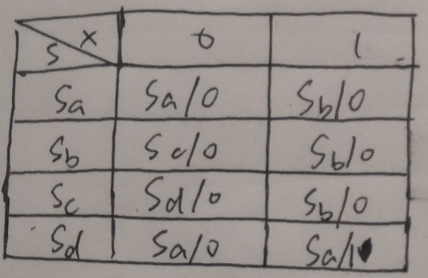 S X 0 1
Sa Sa/0 Sb/0
Sb Sc/0 Sb/0
Sc Sd/0 Sb/0
Sd Sa/0 Sa/1